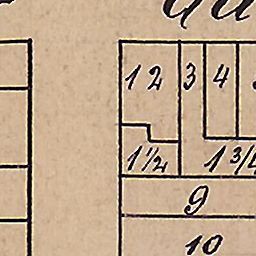 1 2 3 4
1½ 1¾
9
10